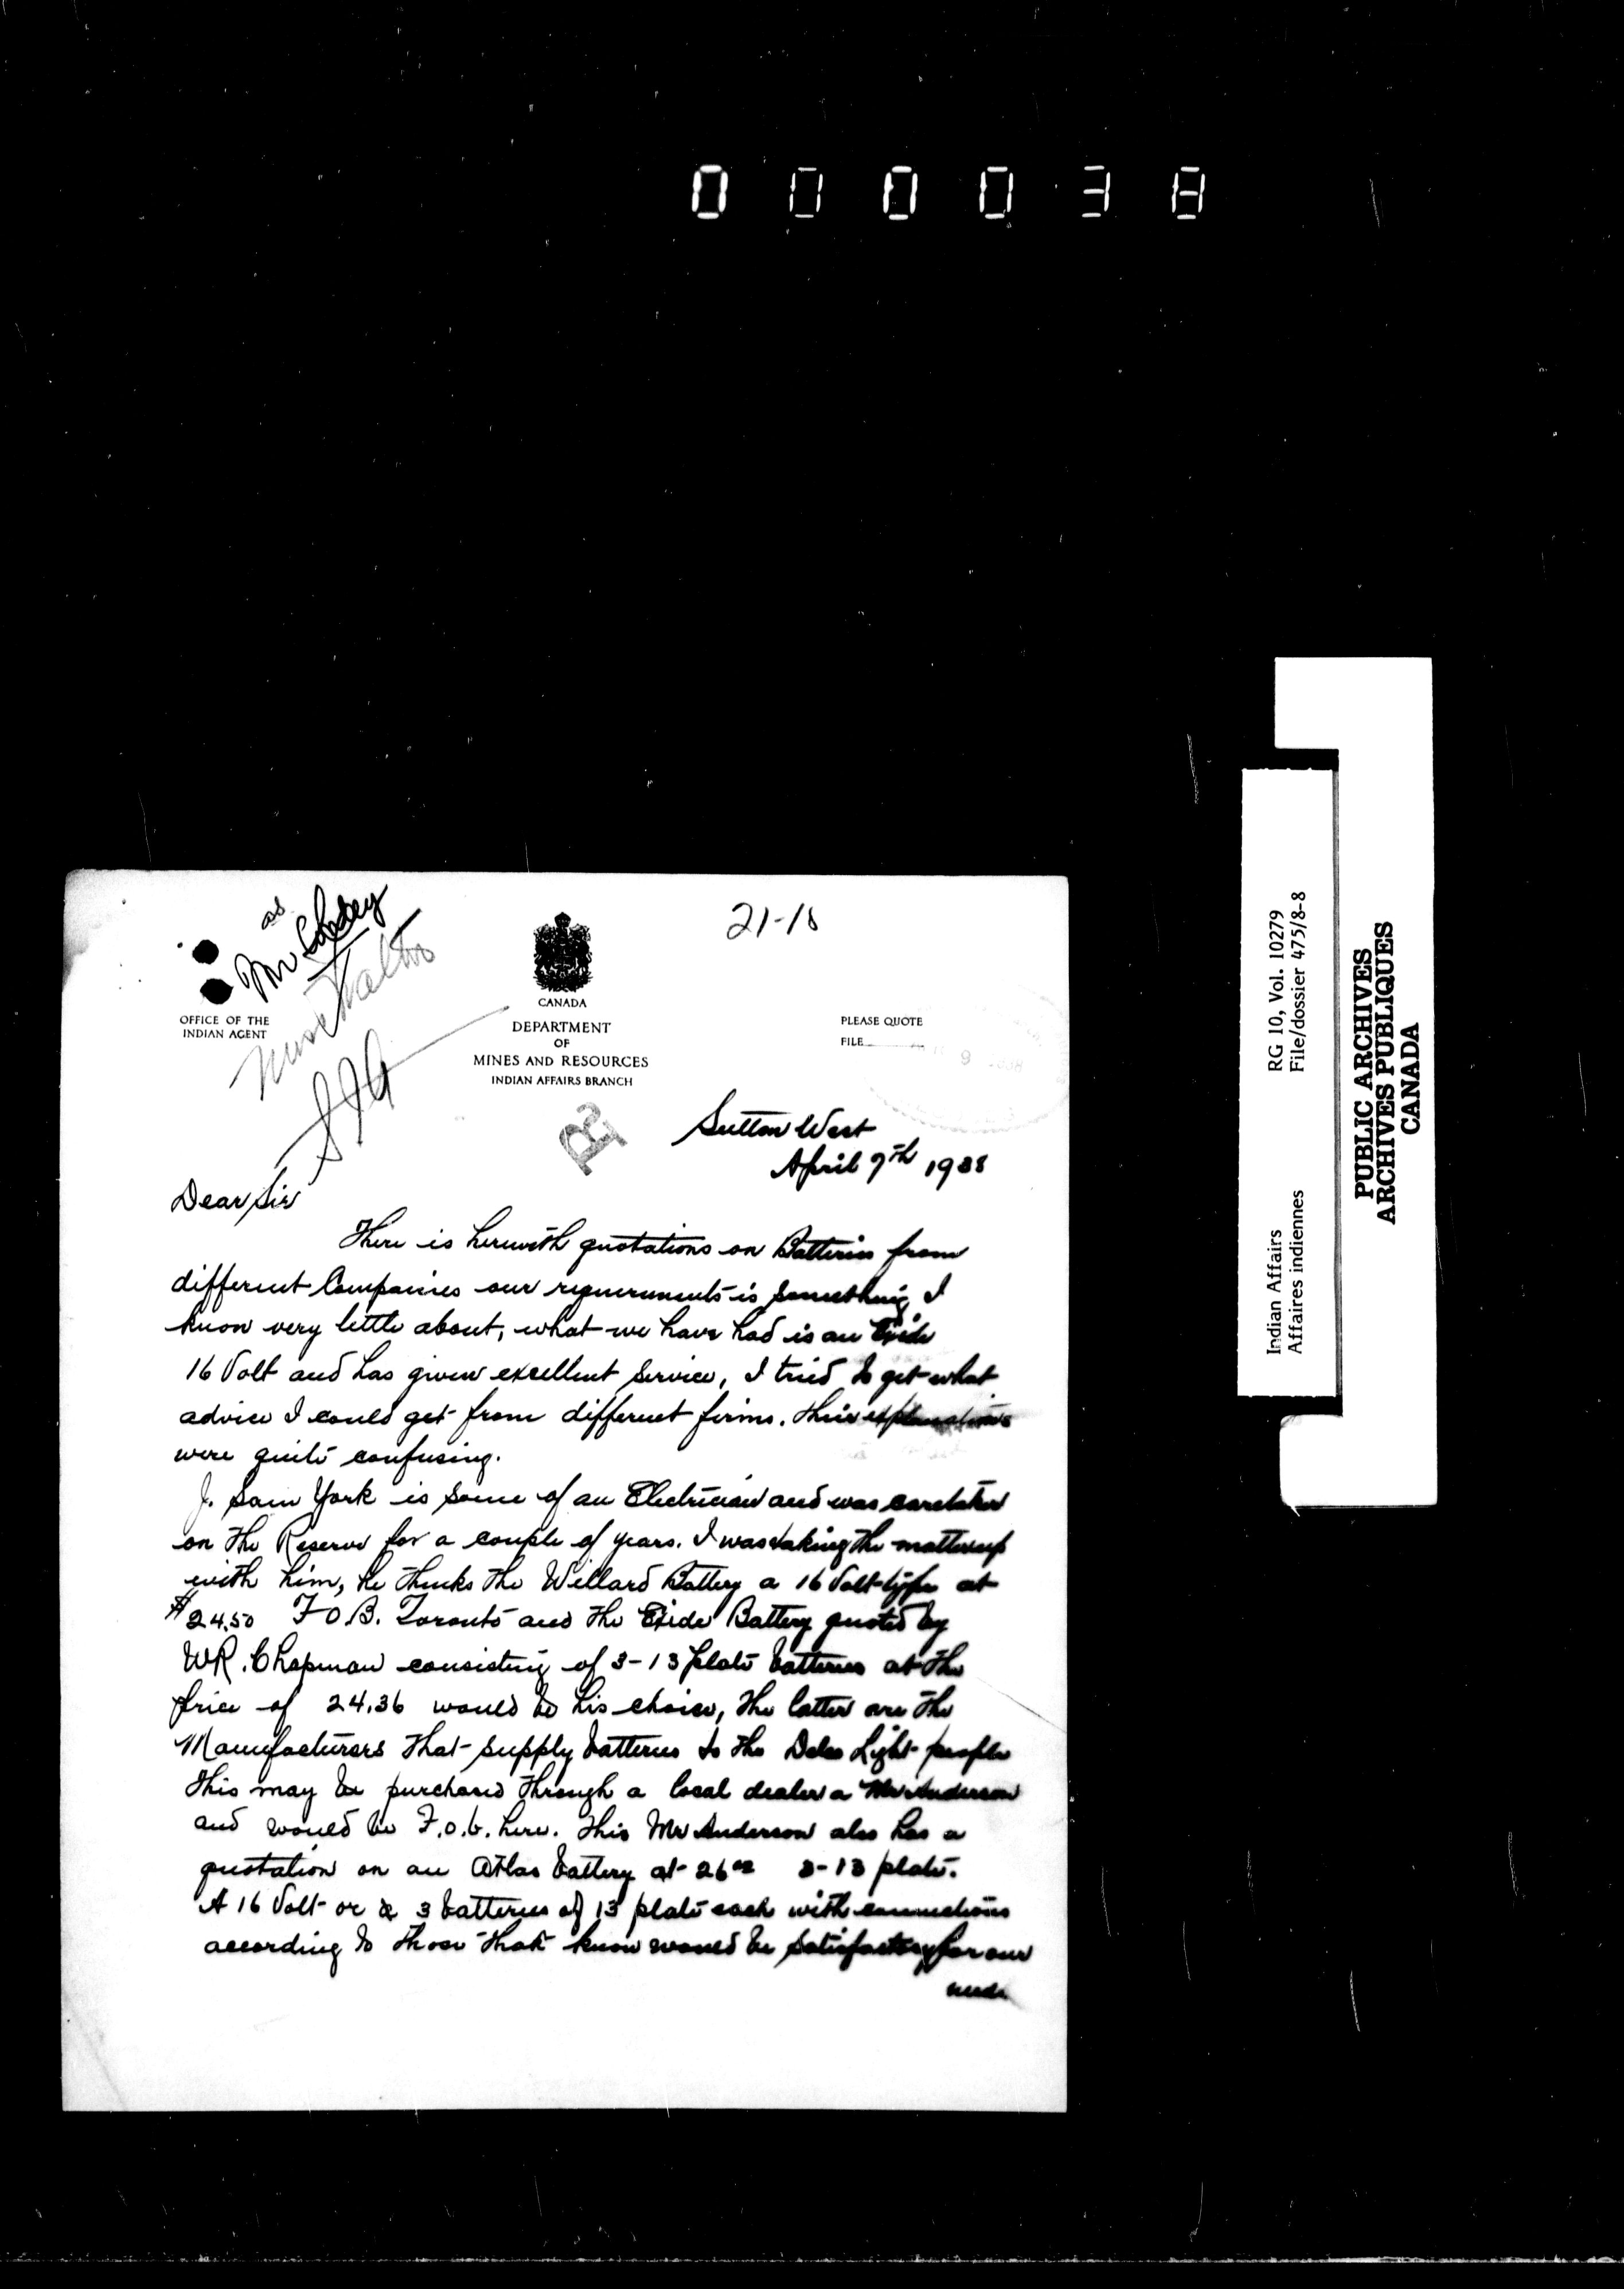 000038
21-18
as
Mr
OFFICE OF THE
INDIAN AGENT
CANADA
DEPARTMENT
OF
MINES AND RESOURCES
INDIAN AFFAIRS BRANCH
PLEASE QUOTE
FILE
Sutton West
April 7th 1938
Dear Sir
There is herewith quotations on Batteries from
different Companies our requirements is something I
know very little about, what we have had is an Exide
16 Volt and has given excellent service, I tried to get what
advice I could get from different firms. their explanations
were quite confusing.
J. Sam York is some of an Electrician and was caretaker
on the Reserve for a couple of years. I was taking the matter up
with him, he thinks the Willard Battery a 16 Volt type at
$24.50 F O B. Toronto and the Exide Battery quoted by
WR. Chapman consisting of 3-13 plate batteries at the
price of 24.36 would be his choice, the latter are the
Manufacturers that supply batteries to the Delco Light people
this may be purchased through a local dealer a Mr Anderson
and would be F.o.b. here. this Mr Anderson also has a
quotation on an Atlas battery at 26 3-13 plate.
A 16 Volt or 3 batteries of 13 plate each with connections
according to those that know would be satisfactory for our
needs
Indian Affairs RG 10, Vol. 10279
Affaires indiennes File/dossier 475/8-8
PUBLIC ARCHIVES
ARCHIVES PUBLIQUES
CANADA